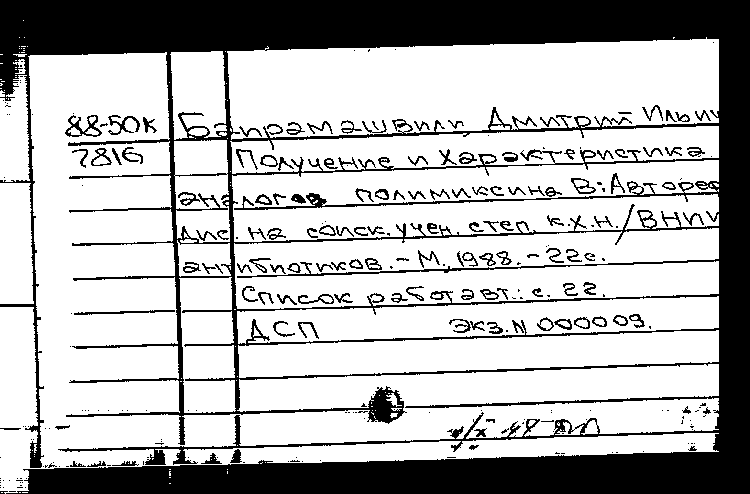 88-50К Баирамашвили, Дмитрий Ильи
7816 Получение и характеристика
аналогов полимиксина В: Авторе
дис. на соиск. учен. степ. к.х.н. / ВНИИ
антибиотиков. - М., 1988. - 22 с.
Список работ авт.: с. 22.
ДСП Экз. N 000009.